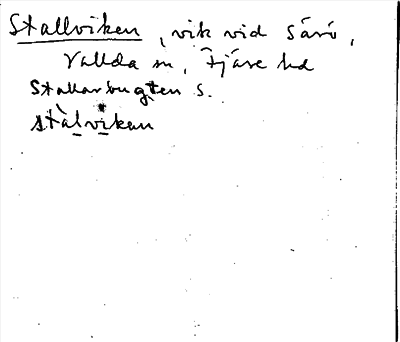 Stallviken, vik vid Särö,
Vallda sn, Fjäre hd
Stallarbugten s.
stàlvikan